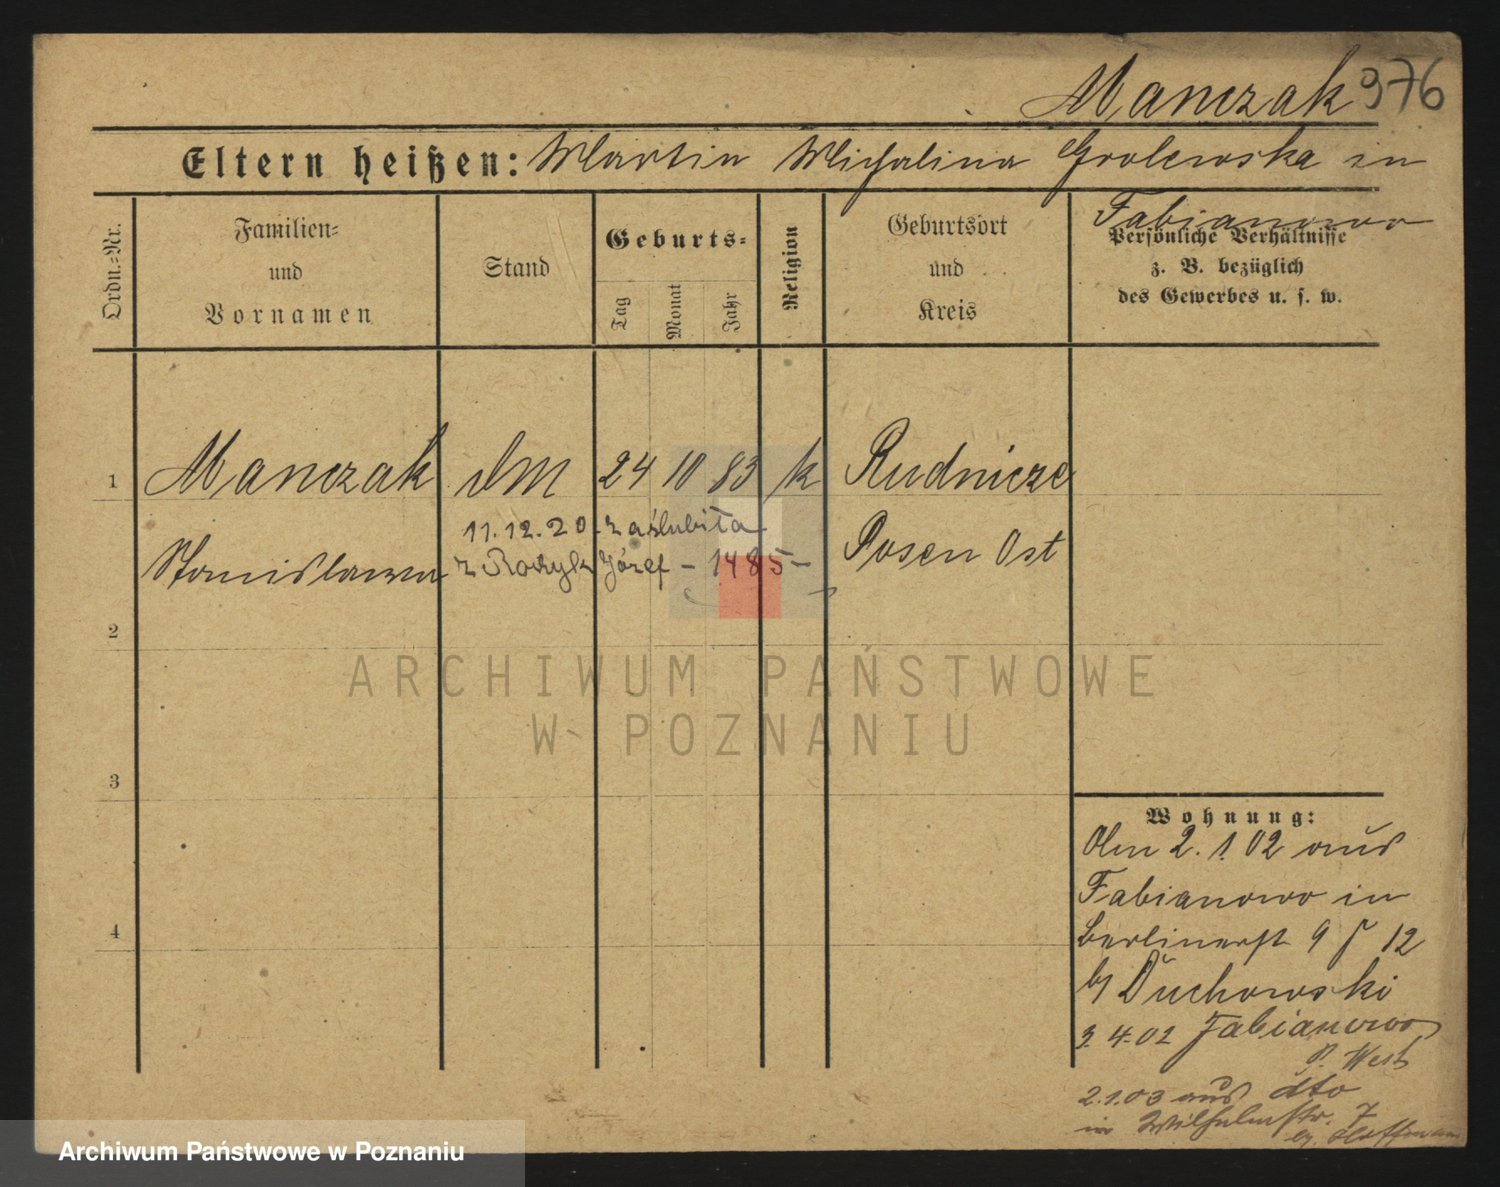 Manczak 976
Eltern heißen: Martin Michalina Grolewska in
Fabianowo
Ordn.-Nr.
Familien-
und
Vornamen
Stand
Geburts-
Tag
Monat
Jahr
Religion
Geburtsort
und
Kreis
Persönliche Verhältnisse
z. B. bezüglich
des Gewerbes u. s. w.
1 Manczak DM 24 10 83 k Rudnicze
11.12.20. zaślubiła
Stanislawa z Józef - 1485- Posen Ost
2
3
4
Wohnung:
2. 1. 02 aus
Fabianowo in
Berlinerst 9 12
b/ Duchowski
3. 4. 02 Fabianowo
P. West
2.1.03 aus dto
in Wilhelmstr. 7
ARCHIWUM PAŃSTWOWE
W POZNANIU
Archiwum Państwowe w Poznaniu